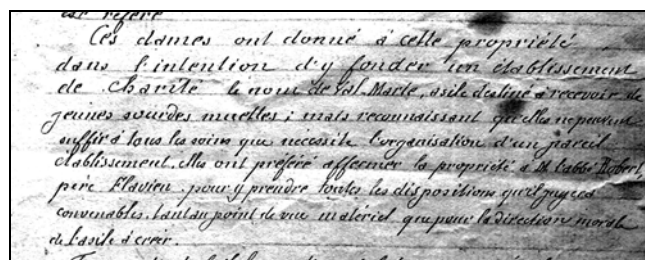 est référé
Ces dames ont donné à cette propriété
dans l'intention d'y fonder un établissement
de charité le nom de Val-Marie, asile destiné à recevoir de
jeunes sourdes muettes ; mais reconnaissant qu'elles ne peuvent
suffir à tous les soins que nécessite l'organisation d'un pareil
établissement, elles ont préféré affermer la propriété à M. l'abbé Robert,
père Flavien, pour y prendre toutes les dispositions qu'il jugera
convenables, tant au point de vue matériel, que pour la direction morale
de l'asile à créer.